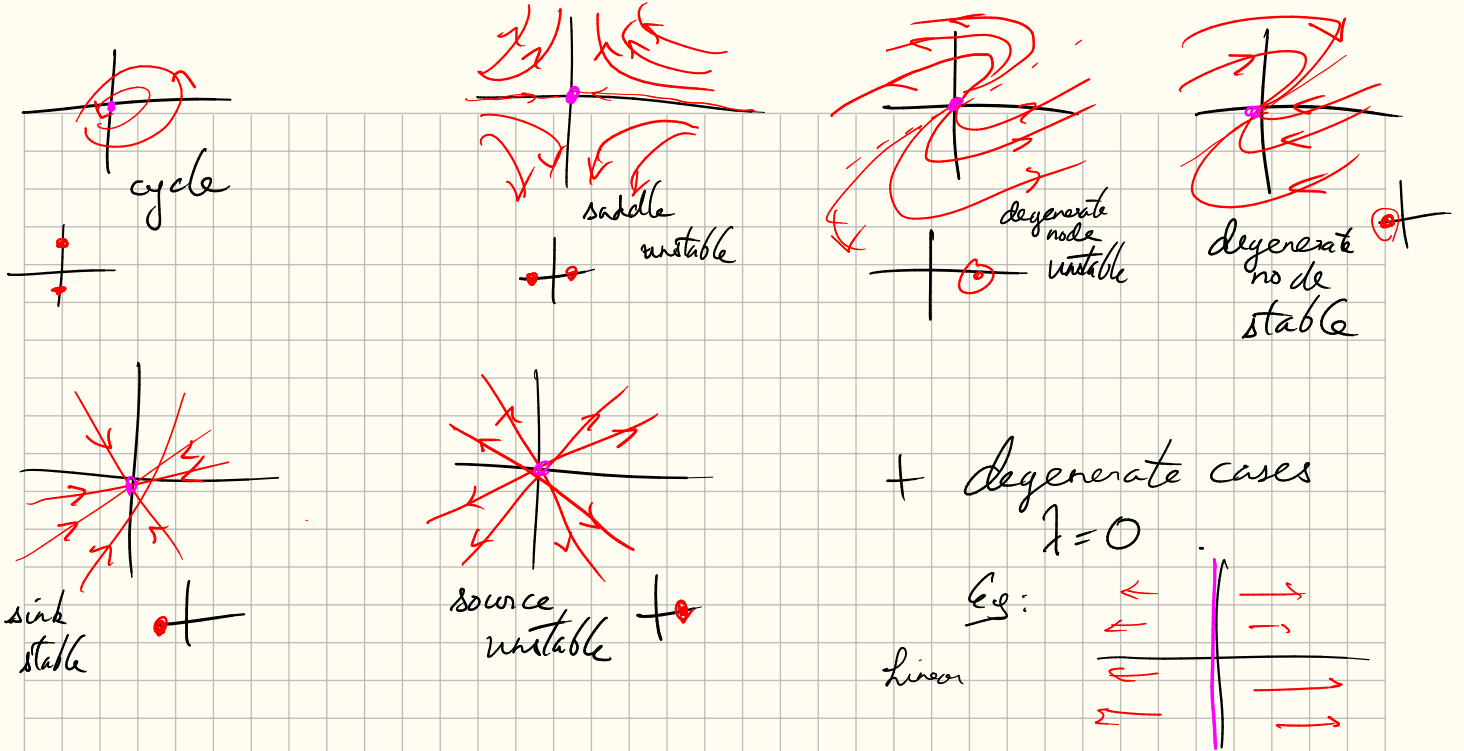 cycle
saddle
unstable
degenerate
node
unstable
degenerate
node
stable
sink
stable
source
unstable
+ degenerate cases
λ=0
Eg:
Linear